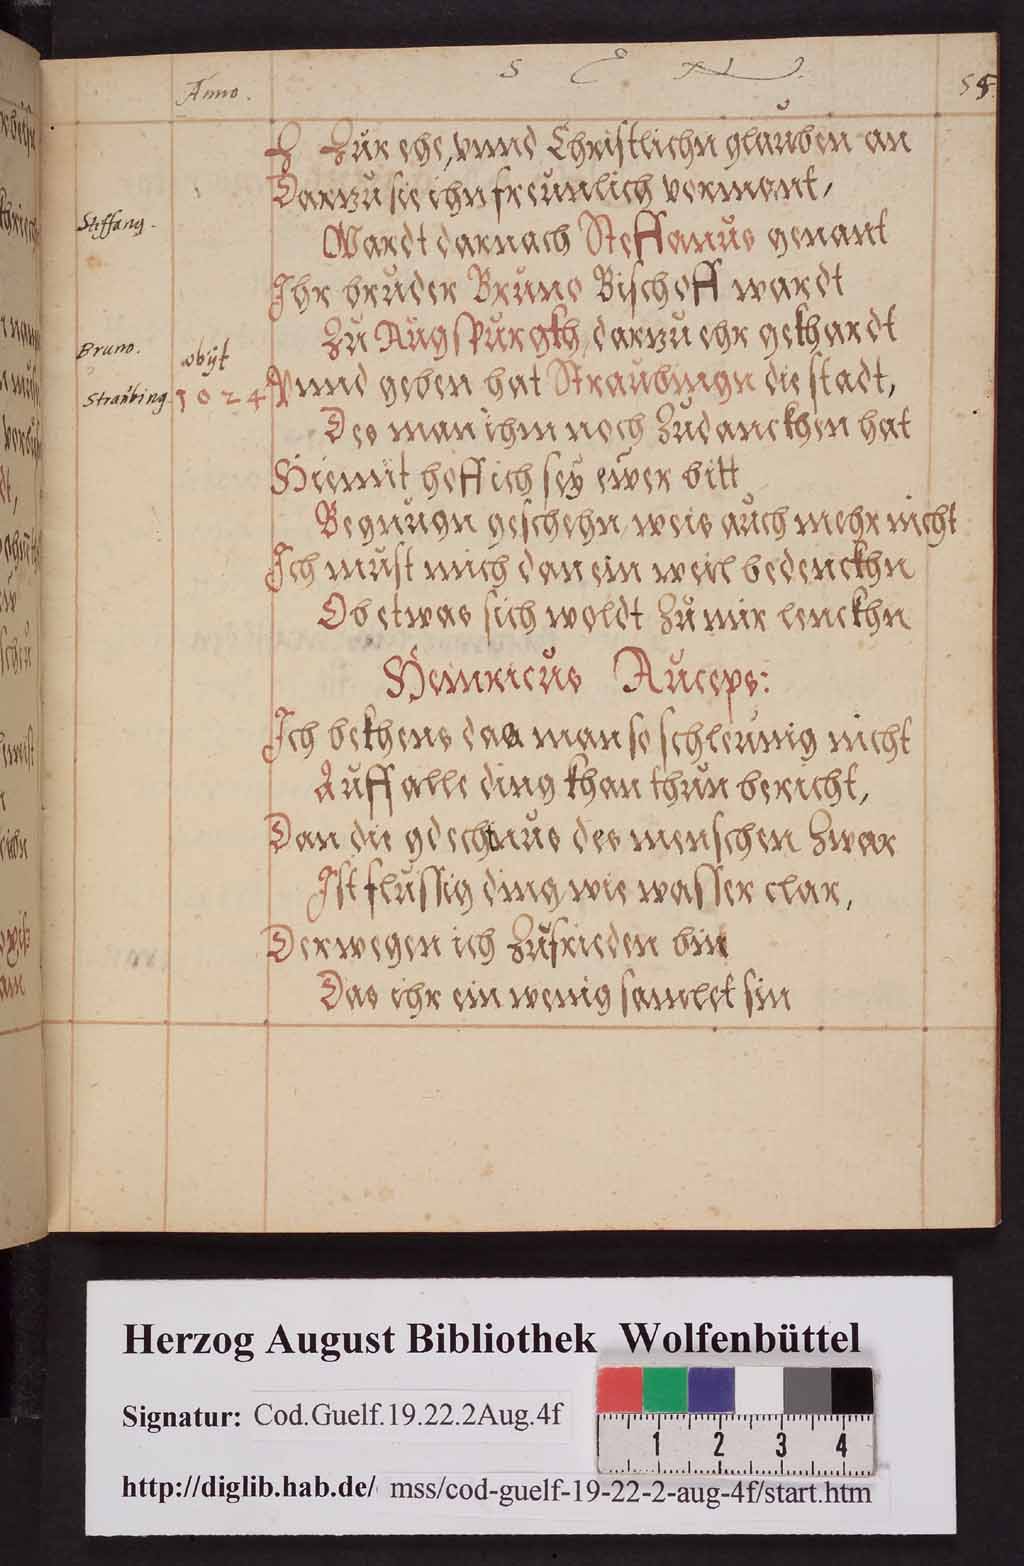 S E N
55
Anno.
Zur ehe, vnnd Christlichn glauben an
Darzu sie ihn freunlich vermont,
Steffang.
Wardt darnach Steffanus genant
Ihr bruder Bruno Bischoff wardt
Bruno.
obijt
Zu Augspurgkh, darzu ehr gekhardt
Straubing 1024
Vnnd geben hat Straubingn die stadt,
Des man ihm noch Zudanckhen hat
Hiemit hoff ich sey ewer bitt
Begnugn geschehn, weis auch mehr nicht
Ich must mich dan ein weil bedenckhn
Ob etwas sich woldt Zu mir lenckhn
Heinricus Auceps:
Ich bekhens das man so schleunig nicht
Auff alle ding khan thun bericht,
Dan die gdechtnus des menschen Zwar
Ist flussig ding wie wasser clar,
Derwegen ich Zufrieden bin
Das ihr ein wenig samlet sin
Herzog August Bibliothek Wolfenbüttel
Signatur: Cod.Guelf.19.22.2Aug.4f
1 2 3 4
http://diglib.hab.de/ mss/cod-guelf-19-22-2-aug-4f/start.htm